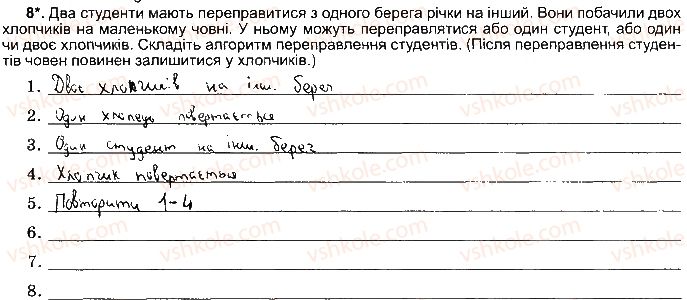 8*. Два студенти мають переправитися з одного берега річки на інший. Вони побачили двох
хлопчиків на маленькому човні. У ньому можуть переправлятися або один студент, або один
чи двоє хлопчиків. Складіть алгоритм переправлення студентів. (Після переправлення студен-
тів човен повинен залишитися у хлопчиків.)
1. Двоє хлопчиків на інш. берег
2. Один хлопець повертається
3. Один студент на інш. берег
4. Хлопчик повертається
5. Повторити 1-4
6.
7.
8.
vshkole.com